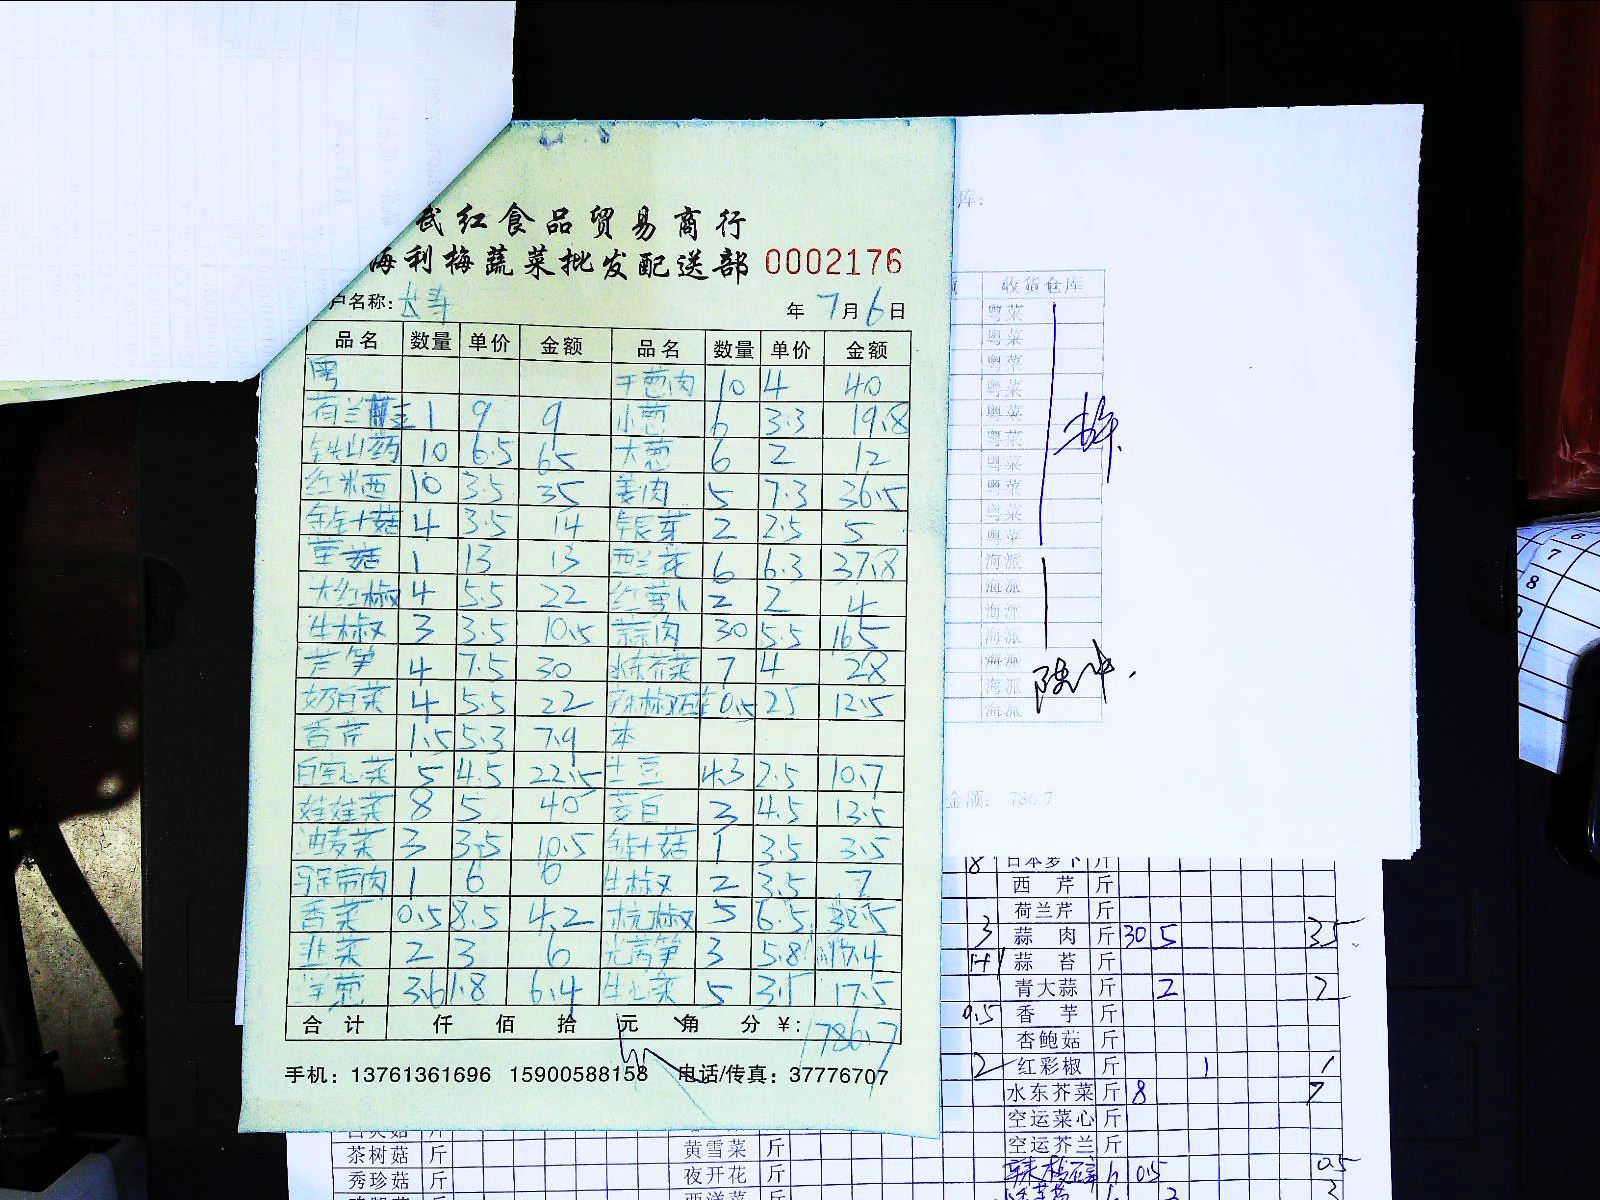 武红食品贸易商行
海利梅蔬菜批发配送部 0002176
户名称: 长寿 年 7月6日
品名 数量 单价 金额 品名 数量 单价 金额
粤 干葱肉 10 4 40
荷兰 1 9 9 小葱 6 3.3 19.8
铁山药 10 6.5 65 大葱 6 2 12
红米西 10 3.5 35 姜肉 5 7.3 36.5
金针菇 4 3.5 14 银芽 2 2.5 5
草菇 1 13 13 西兰花 6 6.3 37.8
大红椒 4 5.5 22 红萝卜 2 2 4
生椒 3 3.5 10.5 蒜肉 30 5.5 165
芦笋 4 7.5 30 水东芥菜 7 4 28
奶白菜 4 5.5 22 0.5 25 12.5
香芹 1.5 5.3 7.9 本
白空心菜 5 4.5 22.5 土豆 4.3 2.5 10.7
娃娃菜 8 5 40 茭白 3 4.5 13.5
油麦菜 3 3.5 10.5 金针菇 1 3.5 3.5
马蹄肉 1 6 6 生椒 2 3.5 7
香菜 0.5 8.5 4.2 杭椒 5 6.5 32.5
韭菜 2 3 6 光莴笋 3 5.8 17.4
洋葱 3.6 1.8 6.4 生心菜 5 3.5 17.5
合计 仟 佰 拾 元 角 分 ¥: 786.7
手机: 13761361696 15900588158 电话/传真: 37776707
库:
收货仓库
粤菜
粤菜
粤菜
粤菜
粤菜
粤菜
粤菜
粤菜
粤菜
粤菜
海派
海派
海派
海派
海派
海派
海派
金额: 786.7
8 日本萝卜 斤
西芹 斤
荷兰芹 斤
3 蒜肉 斤 30 5 35
蒜苔 斤
青大蒜 斤 2 2
0.5 香芋 斤
杏鲍菇 斤
2 红彩椒 斤 1 1
水东芥菜 斤 8 7
空运菜心 斤
空运芥兰 斤
0.5 0.5
茶树菇 斤 黄雪菜 斤
秀珍菇 斤 夜开花 斤
西洋菜 斤
6
7
8